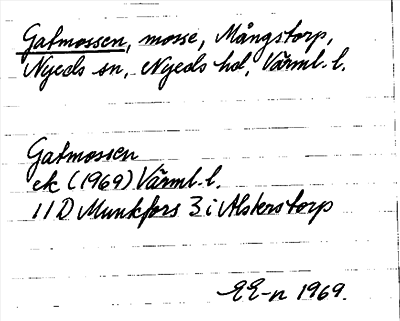 Gatmossen, mosse, Mångstorp,
Nyeds sn, Nyeds hd, Värml. l.
Gatmossen
ek (1969) Värml. l.
11 D Munkfors 3 i Alsterstorp
EE-n 1969.